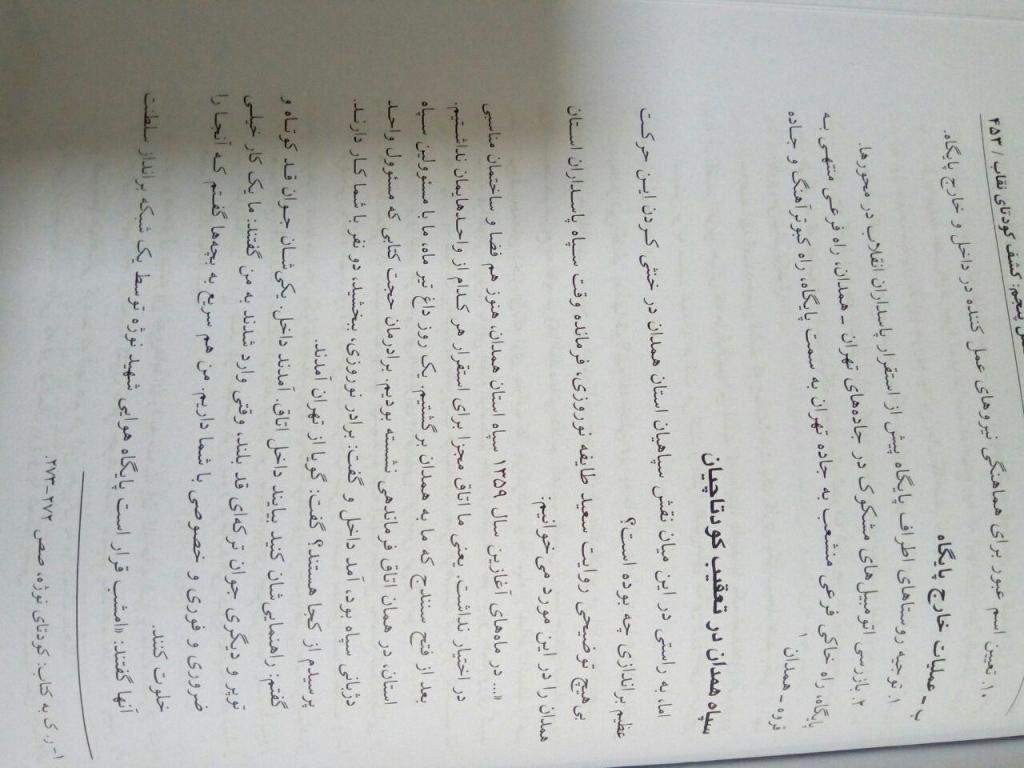 فصل پنجم: کشف کودتای نقاب / ۴۵۳
۱۰. تعیین اسم عبور برای هماهنگی نیروهای عمل کننده در داخل و خارج پایگاه.
ب ـ عملیات خارج پایگاه
۱. توجیه روستاهای اطراف پایگاه پیش از استقرار پاسداران انقلاب در محورها.
۲. بازرسی اتومبیل‌های مشکوک در جاده‌های تهران ـ همدان، راه فرعی منتهی به
پایگاه، راه خاکی فرعی منشعب به جاده تهران به سمت پایگاه، راه کبوترآهنگ و جاده
قروه - همدان ۱
سپاه همدان در تعقیب کودتاچیان
اما، به راستی در این میان نقش سپاهیان استان همدان در خنثی کردن این حرکت
عظیم براندازی چه بوده است؟
بی هیچ توضیحی روایت سعید طایفه نوروزی، فرمانده وقت سپاه پاسداران استان
همدان را در این مورد می‌خوانیم:
«... در ماه‌های آغازین سال ۱۳۵۹ سپاه استان همدان، هنوز هم فضا و ساختمان مناسبی
در اختیار نداشت. یعنی ما اتاق مجزا برای استقرار هر کدام از واحدهایمان نداشتیم.
بعد از فتح سنندج که ما به همدان برگشتیم. یک روز داغ تیر ماه، ما با مسئولین سپاه
استان، در همان اتاق فرماندهی نشسته بودیم. برادرمان حجت کتابی که مسئول واحد
دژبانی سپاه بود، آمد داخل و گفت: برادر نوروزی، ببخشید، دو نفر با شما کار دارند.
پرسیدم از کجا هستند؟ گفت: گویا از تهران آمدند.
گفتم: راهنمایی‌شان کنید بیایند داخل اتاق. آمدند داخل یکی‌شان جوان قد کوتاه و
توپر و دیگری جوان ترکه‌ای قد بلند، وقتی وارد شدند به من گفتند: ما یک کار خیلی
ضروری و فوری و خصوصی با شما داریم. من هم سریع به بچه‌ها گفتم که آنجا را
خلوت کنند.
آنها گفتند: «امشب قرار است پایگاه هوایی شهید نوژه توسط یک شبکه برانداز سلطنت
۱- ر. ک به کتاب: کودتای نوژه، صص ۲۷۲-۲۷۳.